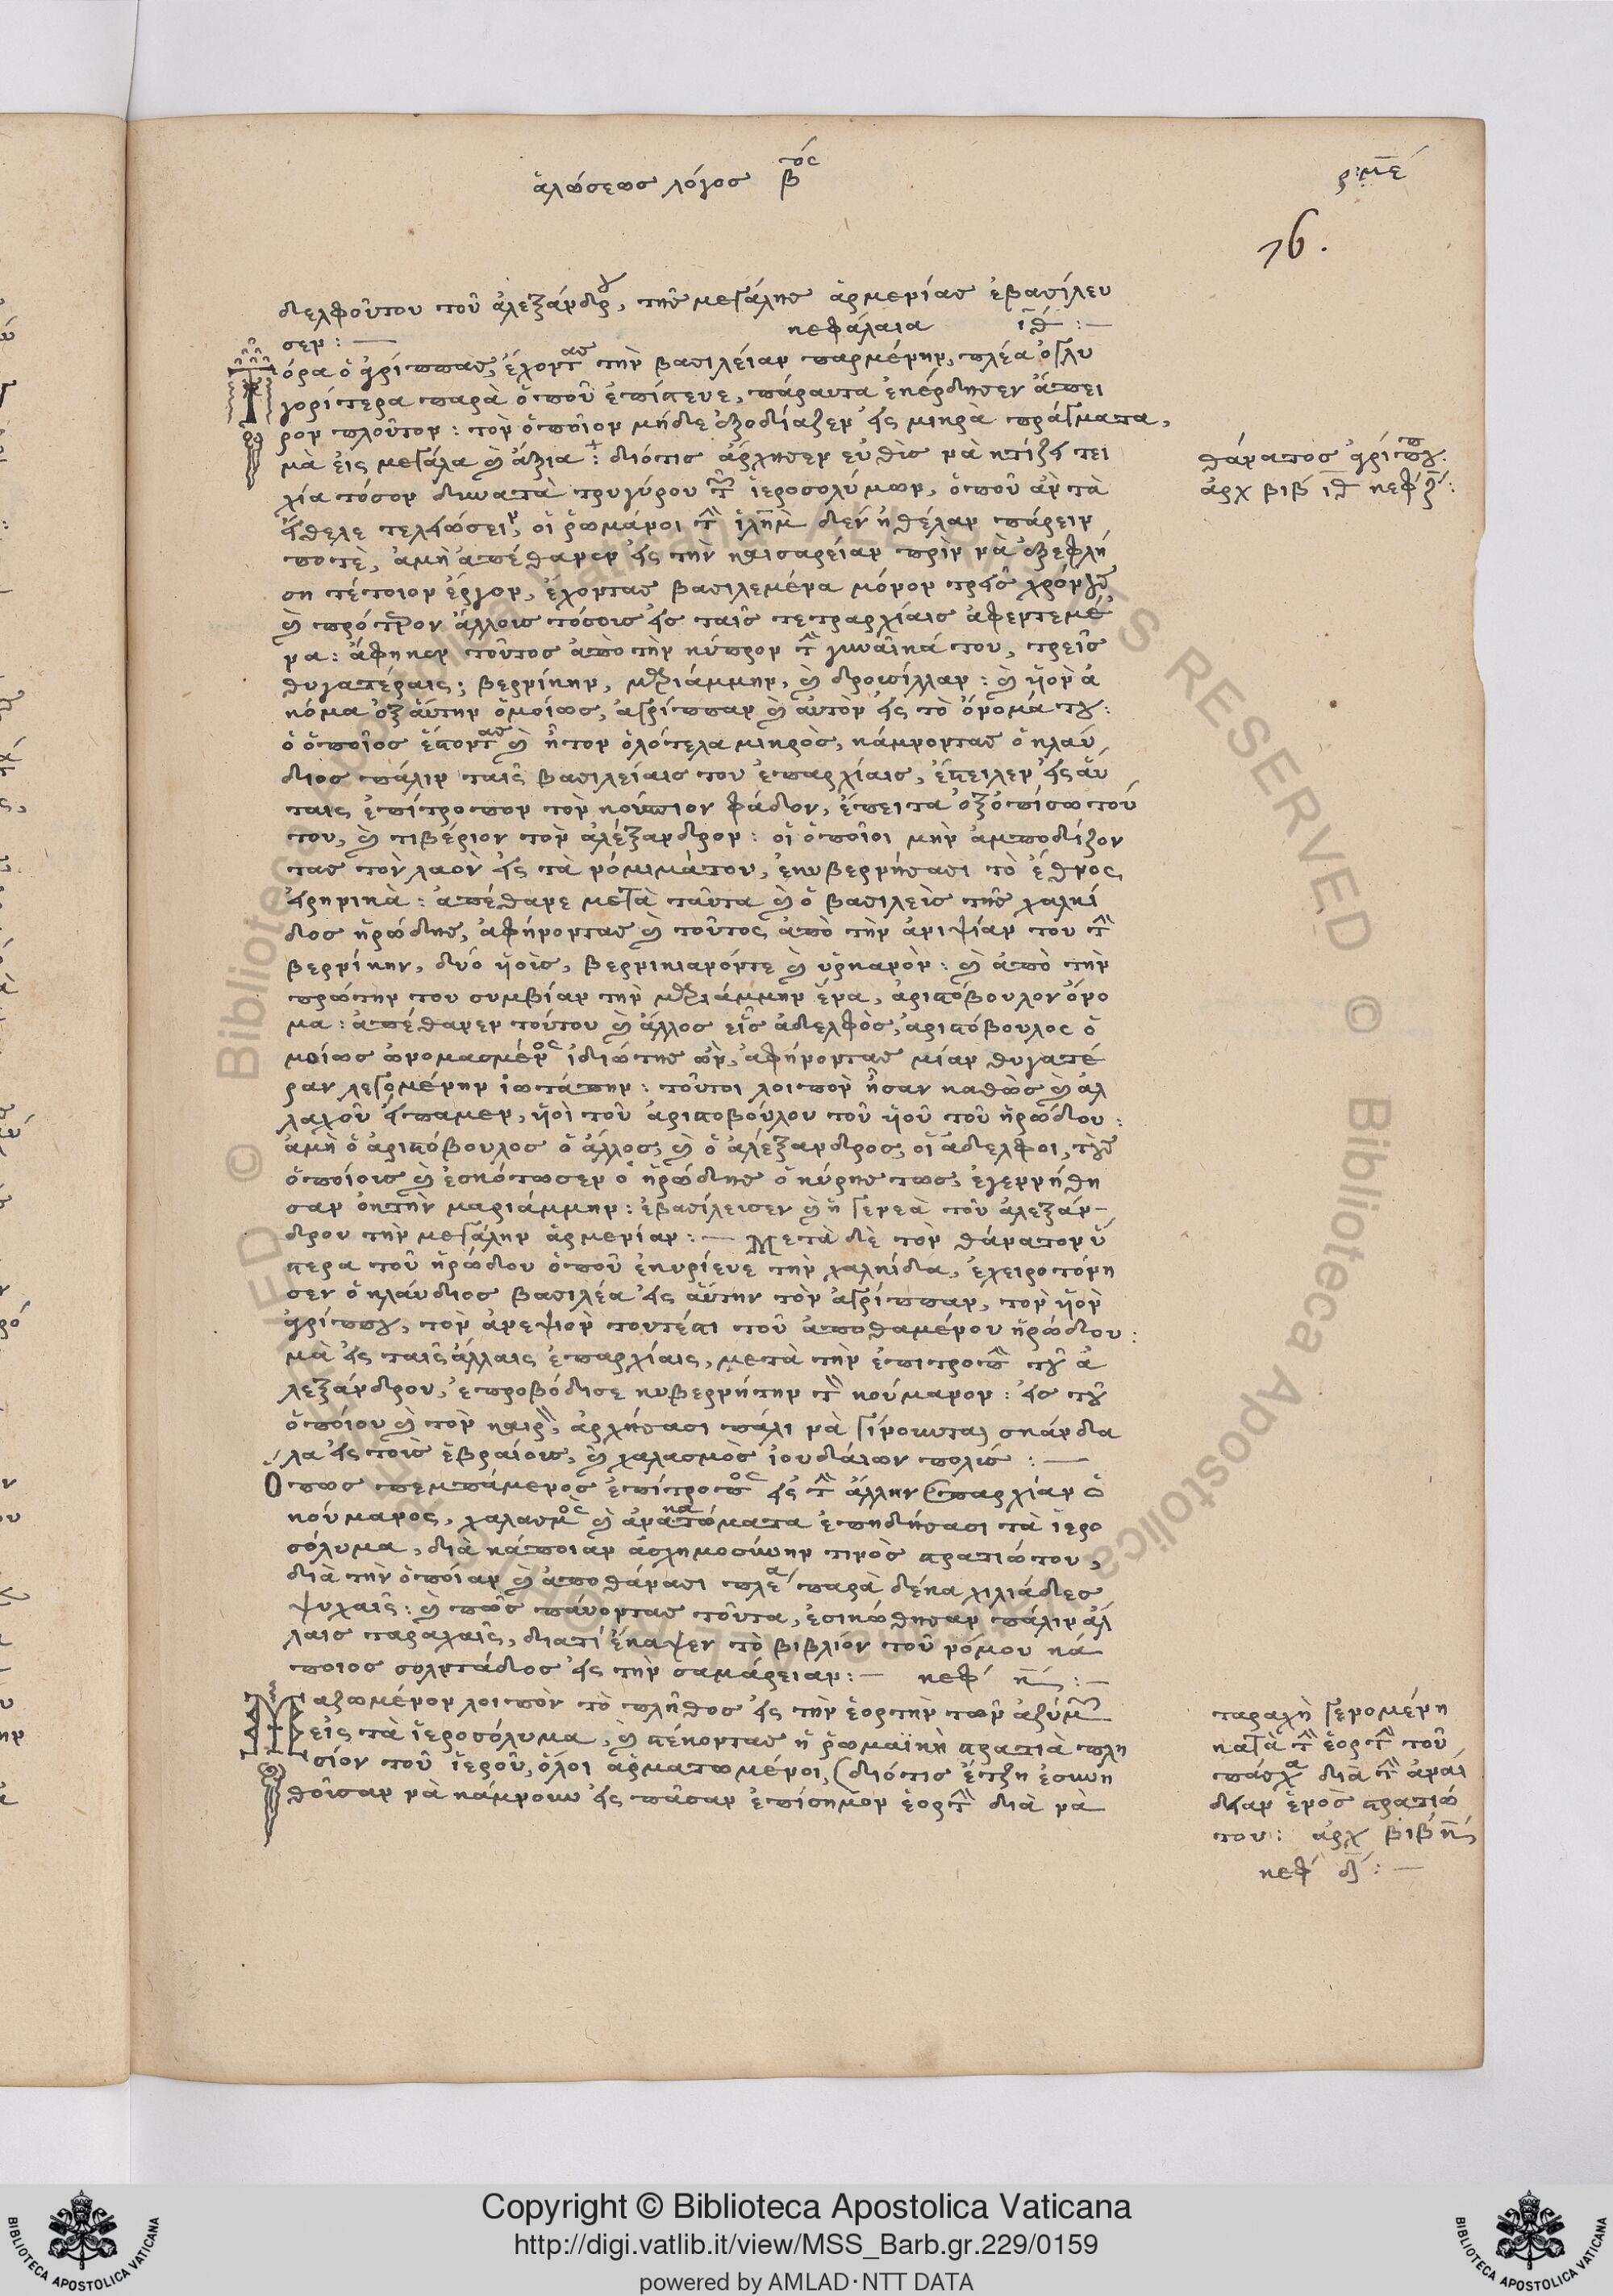 ἁλώσεως λόγος βτος
ρμε
76.
δελφοῦτου τοῦ ἀλεξάνδρου, τῆς μεγάλης ἀρμενίας ἐβασίλευ
σεν : — κεφάλαια ιθ : —
Τόρα ὁ ἀγρίππας, ἔχοντας τὴν βασιλείαν παρμένην, πλέα ὀγλυ
γορίτερα παρὰ ὁποῦ ἐπίστευε, πάραυτα ἐκέρδησεν ἄπει
ρον πλοῦτον : τὸν ὁποῖον μήδε ὀξοδίαζεν εἰς μικρὰ πράγματα,
μὰ εἰς μεγάλα καὶ ἄξια : διότις ἄρχησεν εὐθὶς νὰ κτίζει τει
χία τόσον δυνατὰ τρυγύρου τῶν ἱεροσολύμων, ὁποῦ ἂν τὰ
ἤθελε τελειώσειν, οἱ ῥωμάνοι τὴν ἰλημ δεν ἠθέλαν πάρειν
ποτὲ, ἀμὴ ἀπέθανεν εἰς τὴν καισαρείαν πρὶν νὰ ὀξεφλή
ση τέτοιον ἔργον, ἔχοντας βασιλεμένα μόνον τρεῖς χρόνους
καὶ πρότερον ἄλλους τόσους εἰς ταῖς τετραρχίαις ἀφεντεμέ
να : ἄφηκεν τοῦτος ἀπὸ τὴν κύπρον τὴν γυναῖκά του, τρεῖς
θυγατέραις; βερνίκην, μαριάμμην, καὶ δρουσίλλαν : καὶ ὑὸν ἀ
κόμα ὀξ αὕτην ὁμοίως, ἀγρίππαν καὶ αὐτὸν εἰς τὸ ὄνομά του :
ὁ ὁποῖος ἔστοντας καὶ ἦτον ὁλότελα μικρὸς, κάμνοντας ὁ κλαύ
διος πάλιν ταῖς βασιλείαις του ἐπαρχίαις, ἔστειλεν εἰς αὕ
ταις ἐπίτροπον τὸν κούσπιον φάδον, ἔπειτα ὀξοπίσω τού
του, καὶ τιβέριον τὸν ἀλέξανδρον : οἱ ὁποῖοι μὴν ἀμποδίζον
τας τὸν λαὸν εἰς τὰ νόμιμάτου, ἐκυβερνήσασι τὸ ἔθνος
εἰρηνικὰ : ἀπέθανε μετὰ ταῦτα καὶ ὁ βασιλεὶς τῆς χαλκί
δος ἡρώδης, ἀφήνοντας καὶ τοῦτος ἀπὸ τὴν ἀνιψίαν του τὴν
βερνίκην, δυὸ ὑοὶς, βερνικιανόντε καὶ ὑρκανὸν : καὶ ἀπὸ τὴν
πρώτην του συμβίαν τὴν μαριάμμην ἕνα, ἀριστόβουλον ὄνο
μα : ἀπέθανεν τούτου καὶ ἄλλος εἷς ἀδελφὸς, ἀριστόβουλος ὁ
μοίως ὀνομασμένος ἰδιώτης ὢν, ἀφήνοντας μίαν θυγατέ
ραν λεγομένην ἰωτάπην : τοῦτοι λοιπὸν ἦσαν καθὼς καὶ ἀλ
λαχοῦ εἴπαμεν, ὑοὶ τοῦ ἀριστοβούλου τοῦ ὑοῦ τοῦ ἡρώδου :
ἀμὴ ὁ ἀριστόβουλος ὁ ἄλλος, καὶ ὁ ἀλέξανδρος, οἱ ἀδελφοι, τοὺς
ὁποίους καὶ ἐσκότωσεν ὁ ἡρώδης ὁ κύρης τως, ἐγεννήθη
σαν ἐκ τὴν μαριάμμην : ἐβασίλεισεν καὶ ἡ γενεὰ τοῦ ἀλεξάν-
δρου τὴν μεγάλην ἀρμενίαν : — Μετὰ δὲ τὸν θάνατον ὕ
στερα τοῦ ἡρώδου ὁποῦ ἐκυρίευε τὴν χαλκίδα, ἐχειροτόνη
σεν ὁ κλαύδιος βασιλέα εἰς αὕτην τὸν ἀγρίππαν, τὸν ὑὸν
ἀγρίππου, τὸν ἀνεψιὸν τουτέστι τοῦ ἀποθαμένου ἡρώδου :
μὰ εἰς ταῖς ἄλλαις ἐπαρχίαις, μετὰ τὴν ἐπιτροπὴν τοῦ ἀ
λεξάνδρου, ἐπροβόδισε κυβερνήτην τὸν κούμανον : εἰς τοῦ
ὁποίου καὶ τὸν καιρὸν, ἀρχήσασι πάλι νὰ γίνουνται σκάνδα
λα εἰς τοὶς ἑβραίους, καὶ χαλασμὸς ἰουδαίων πολὺς : —
Ὅπως πεμπάμενος ἐπίτροπος εἰς τὴν ἄλλην ἐπαρχίαν ὁ
κούμανος, χαλασμὸς καὶ ἀνακατώματα ἐπηδήσασι τὰ ἱερο
σόλυμα, διὰ κάποιαν ἀσχημοσύνην τινὸς στρατιώτου,
διὰ τὴν ὁποίαν καὶ ἀποθάνασι πλέα παρὰ δέκα χιλιάδες
ψυχαῖς : καὶ πῶς παύοντας τοῦτα, ἐσικώθησαν πάλιν ἄλ
λαις ταραχαῖς, διατί ἔκαψεν τὸ βιβλίον τοῦ νόμου κά
ποιος σολντάδος εἰς τὴν σαμάρειαν : — κεφ κ : —
Μαζωμένον λοιπὸν τὸ πλῆθος εἰς τὴν ἑορτὴν τῶν ἀζύμων
εἰς τὰ ἱεροσόλυμα, καὶ στέκοντας ἡ ῥωμαϊκὴ στρατιὰ πλη
σίον τοῦ ἱεροῦ, ὅλοι ἀρματωμένοι, (διότις ἔτζη ἐσυνη
θοῦσαν νὰ κάμνουν εἰς πᾶσαν ἐπίσημον ἑορτὴν διὰ νὰ
θάνατος ἀγρίππου :
ἀρχ βιβ ιθ κεφ
ταραχὴ γενομένη
κατὰ τὴν ἑορτὴν τοῦ
πάσχα διὰ τὴν ἀναί
δειαν ἑνὸς στρατιώ
του : ἀρχ βιβ κ
κεφ δ : —
Copyright © Biblioteca Apostolica Vaticana
http://digi.vatlib.it/view/MSS_Barb.gr.229/0159
powered by AMLAD·NTT DATA
BIBLIOTECA APOSTOLICA VATICANA
BIBLIOTECA APOSTOLICA VATICANA